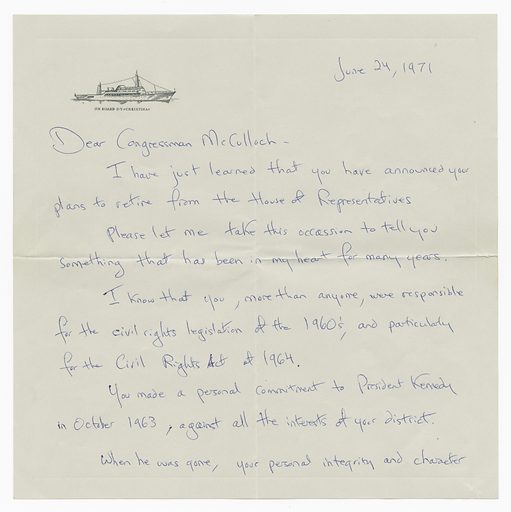 June 24, 1971
ON BOARD O/Y "CHRISTINA"
Dear Congressman McCulloch -
I have just learned that you have announced your
plans to retire from the House of Representatives
Please let me take this occassion to tell you
something that has been in my heart for many years.
I know that you, more than anyone, were responsible
for the civil rights legislation of the 1960's, and particularly
for the Civil Rights Act of 1964.
You made a personal commitment to President Kennedy
in October 1963, against all the interests of your district.
When he was gone, your personal integrity and character